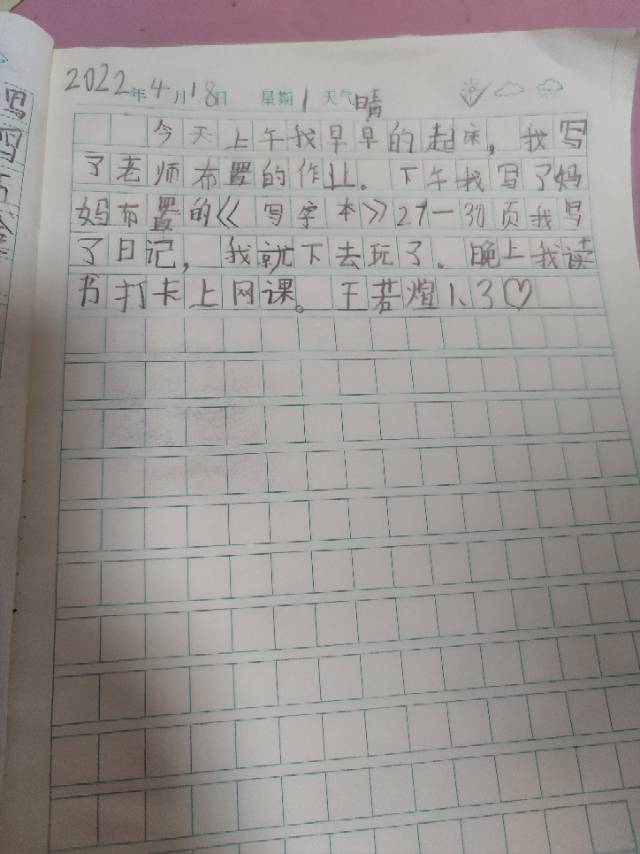 2022年4月18日 星期1 天气晴
今天上午我早早的起床，我写
了老师布置的作业。下午我写了妈
妈布置的《写字本》29一30页我写
了日记，我就下去玩了。晚上我读
书打卡上网课。王若煊1、3♡